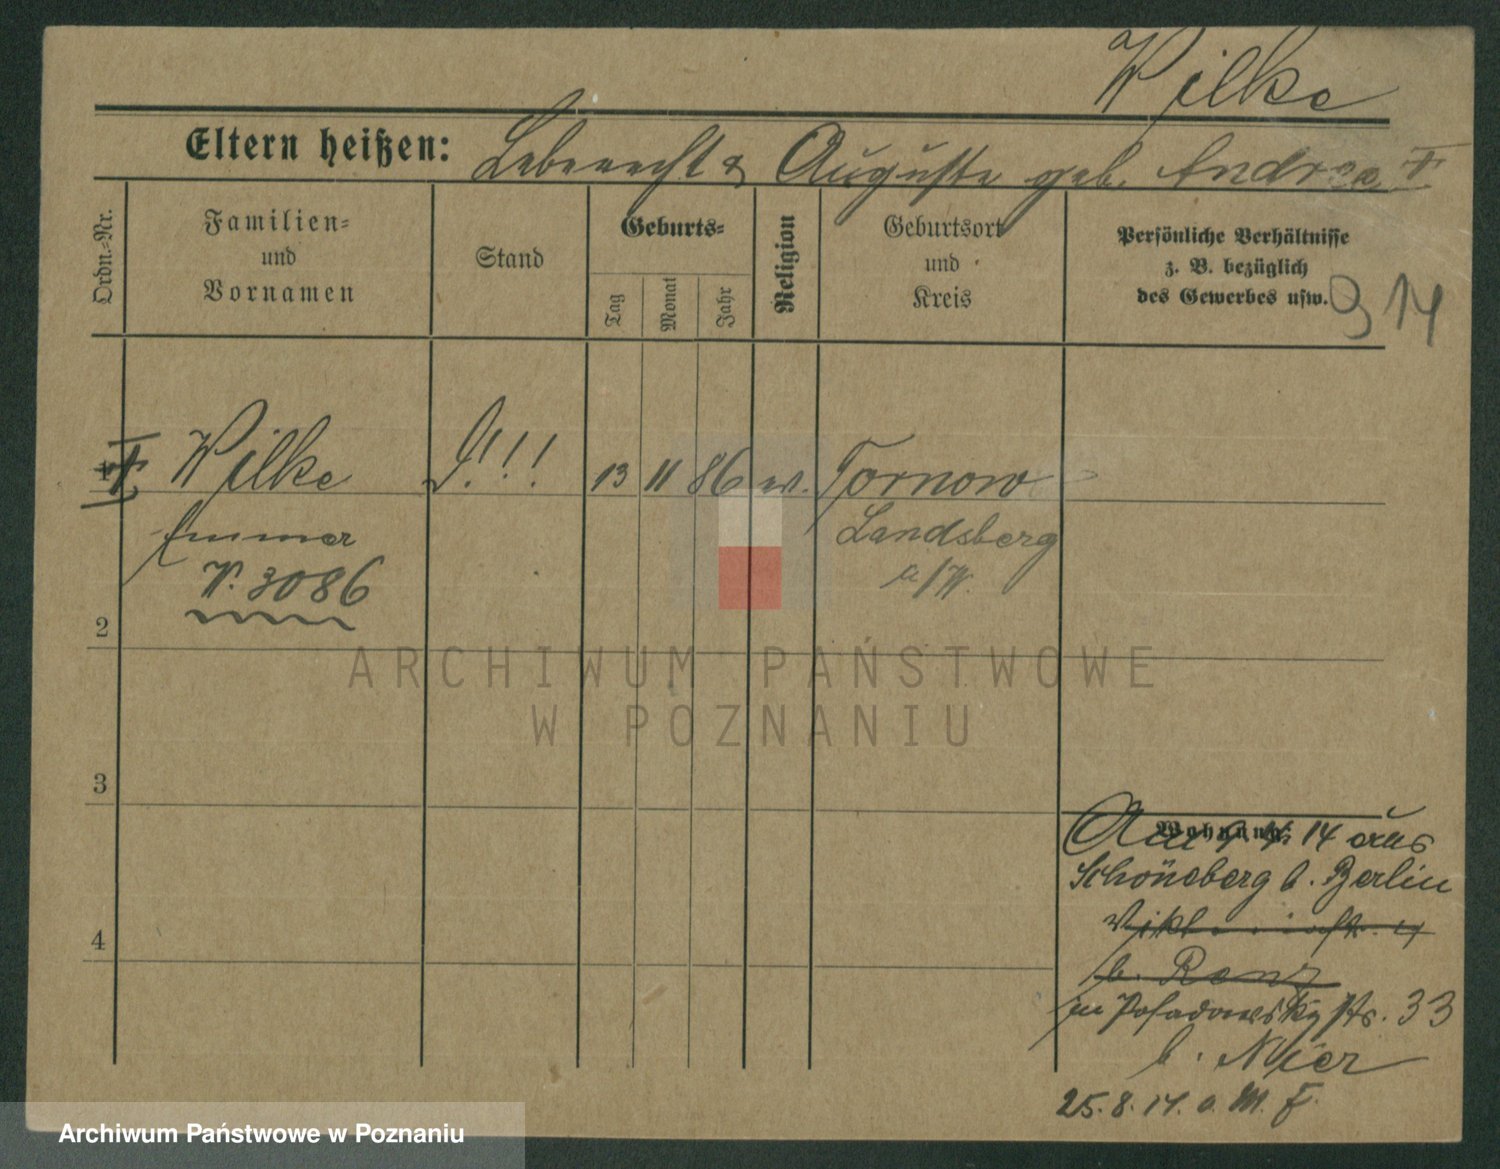 Wilke
Eltern heißen: Leberecht & Auguste geb. Andrea
Ordn.-Nr.
Familien-
und
Vornamen
Stand
Geburts-
Tag
Monat
Jahr
Religion
Geburtsort
und
Kreis
Persönliche Verhältnisse
z. B. bezüglich
des Gewerbes usw.
914
Wilke
!!!
13 11 86 ev. Tornow
Landsberg
a/W.
W. 3086
2
3
4
Wohnung:
14 aus
Schöneberg b. Berlin
b. Renz
in Posadowsky str. 33
b. Nier
25. 8. 14.
ARCHIWUM PAŃSTWOWE
W POZNANIU
Archiwum Państwowe w Poznaniu